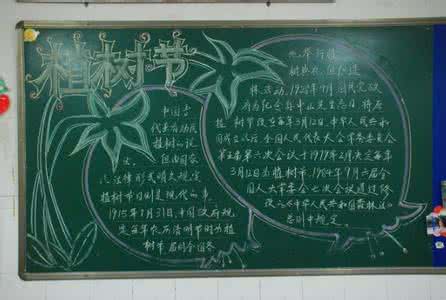 植树节
中国古
代更有动员
植树的说
法,但由国家
以法律形式明文规定
植树节日则是现代的事。
1915年7月31日,中国政府规
定每年农历清明节时为植
树节,届时全国各
地举行植
树典礼
活动。1928年4月国民党政
府为纪念孙中山先生忌日,将原
植树节改在每年3月12日,中华人民共和
国成立以后,全国人民代表大会常务委员会
第五届第六次会议于1979年2月决定每年
3月12日为植树节,1984年9月六届全
国人大常委会七次会议通过修
改的《中华人民共和国森林法》
总则中规定